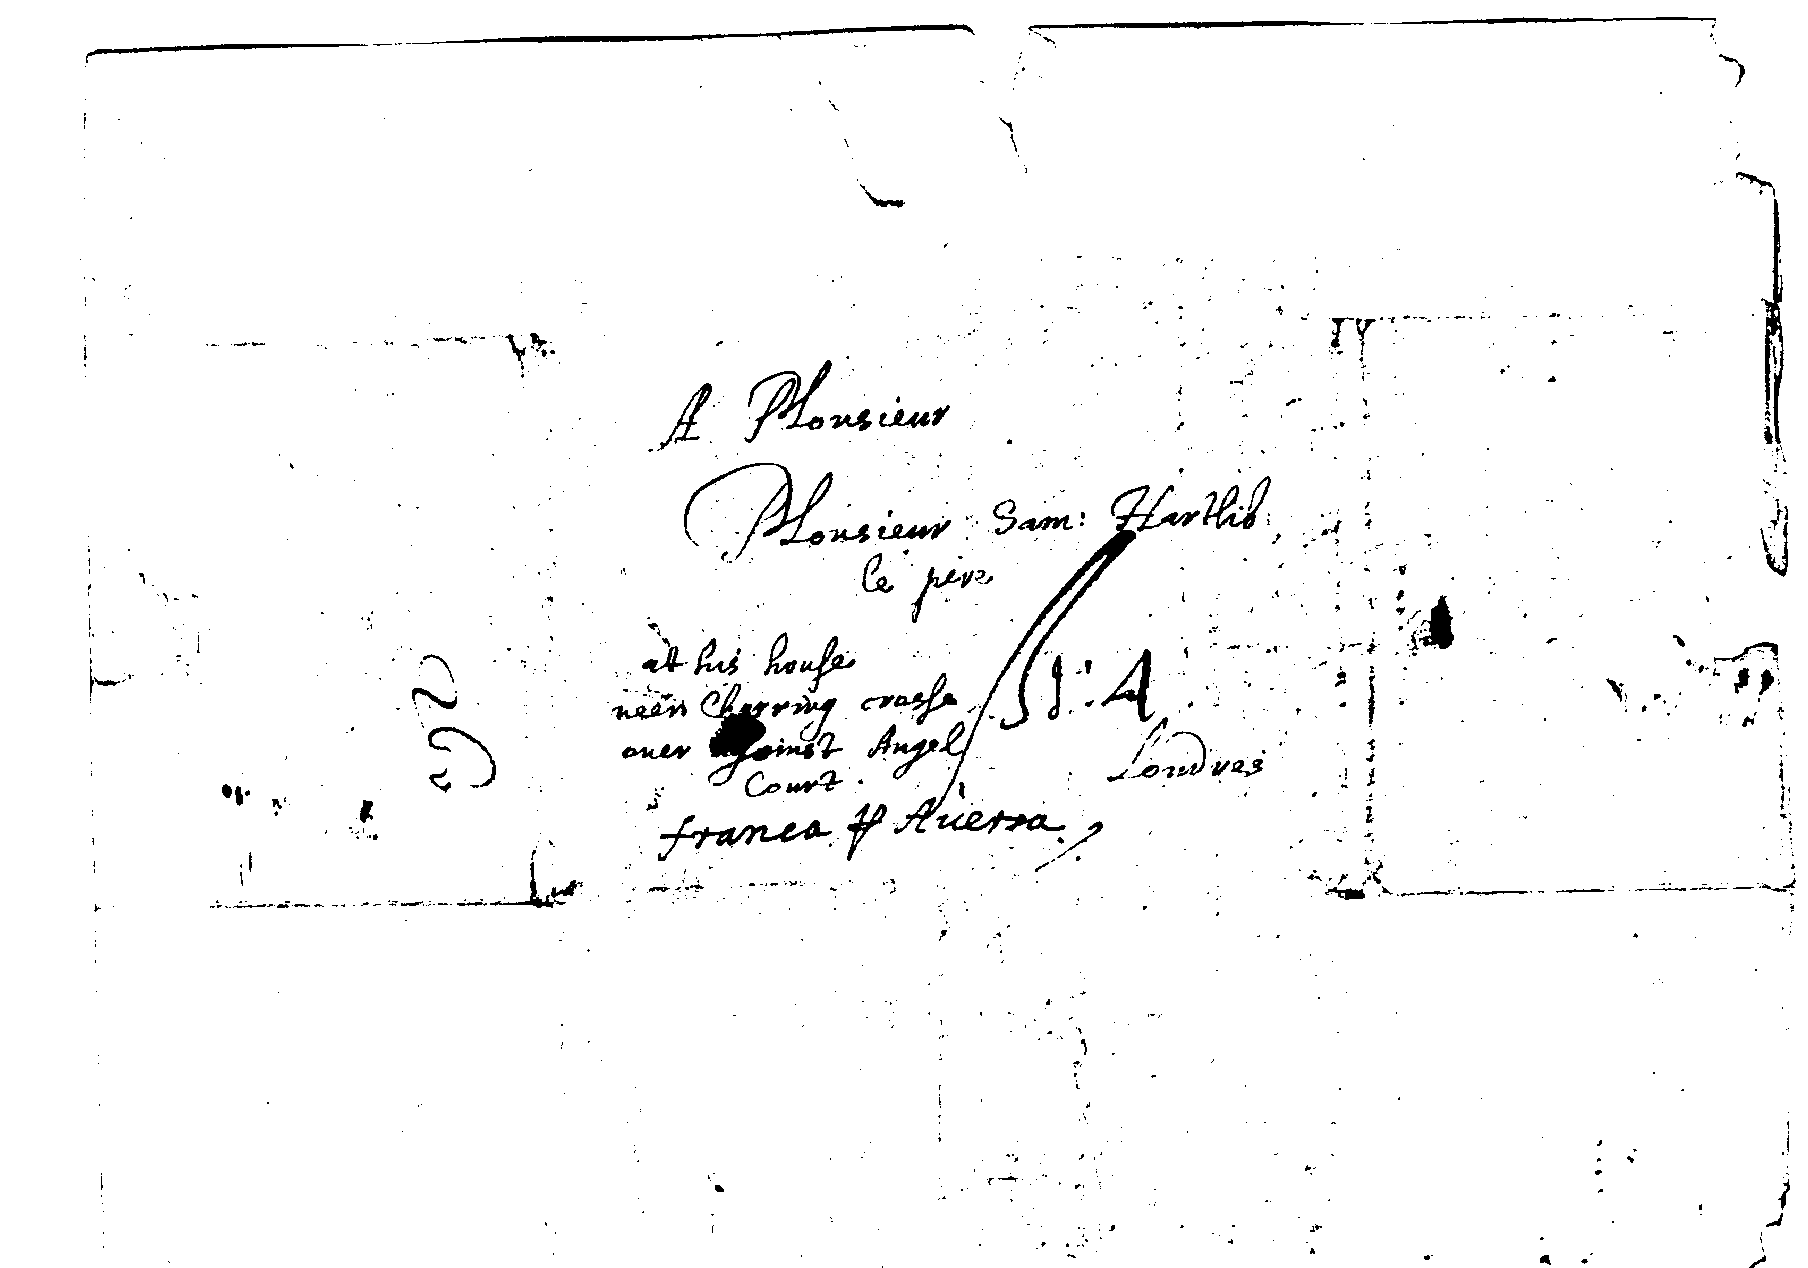 A Monsieur
Monsieur Sam: Hartlib
le pere
at his house
neen Charring crosse
over against Angel
Court.
Londres
franca p Auersa